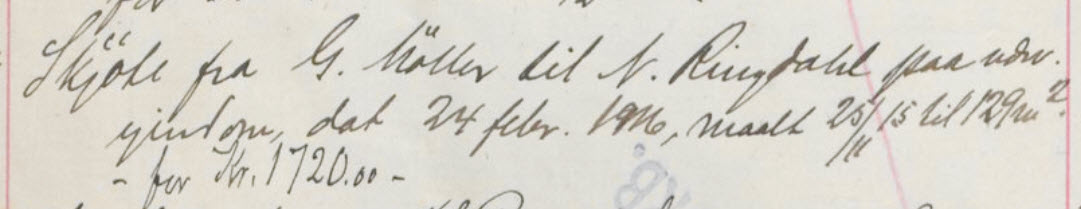 Skjöte fra G. Möller til N. Ringdahl paa nævn.
ejendom, dat 24 febr. 1916, maalt 25/11 15 til 129 m².
- for Kr. 1720.00 -